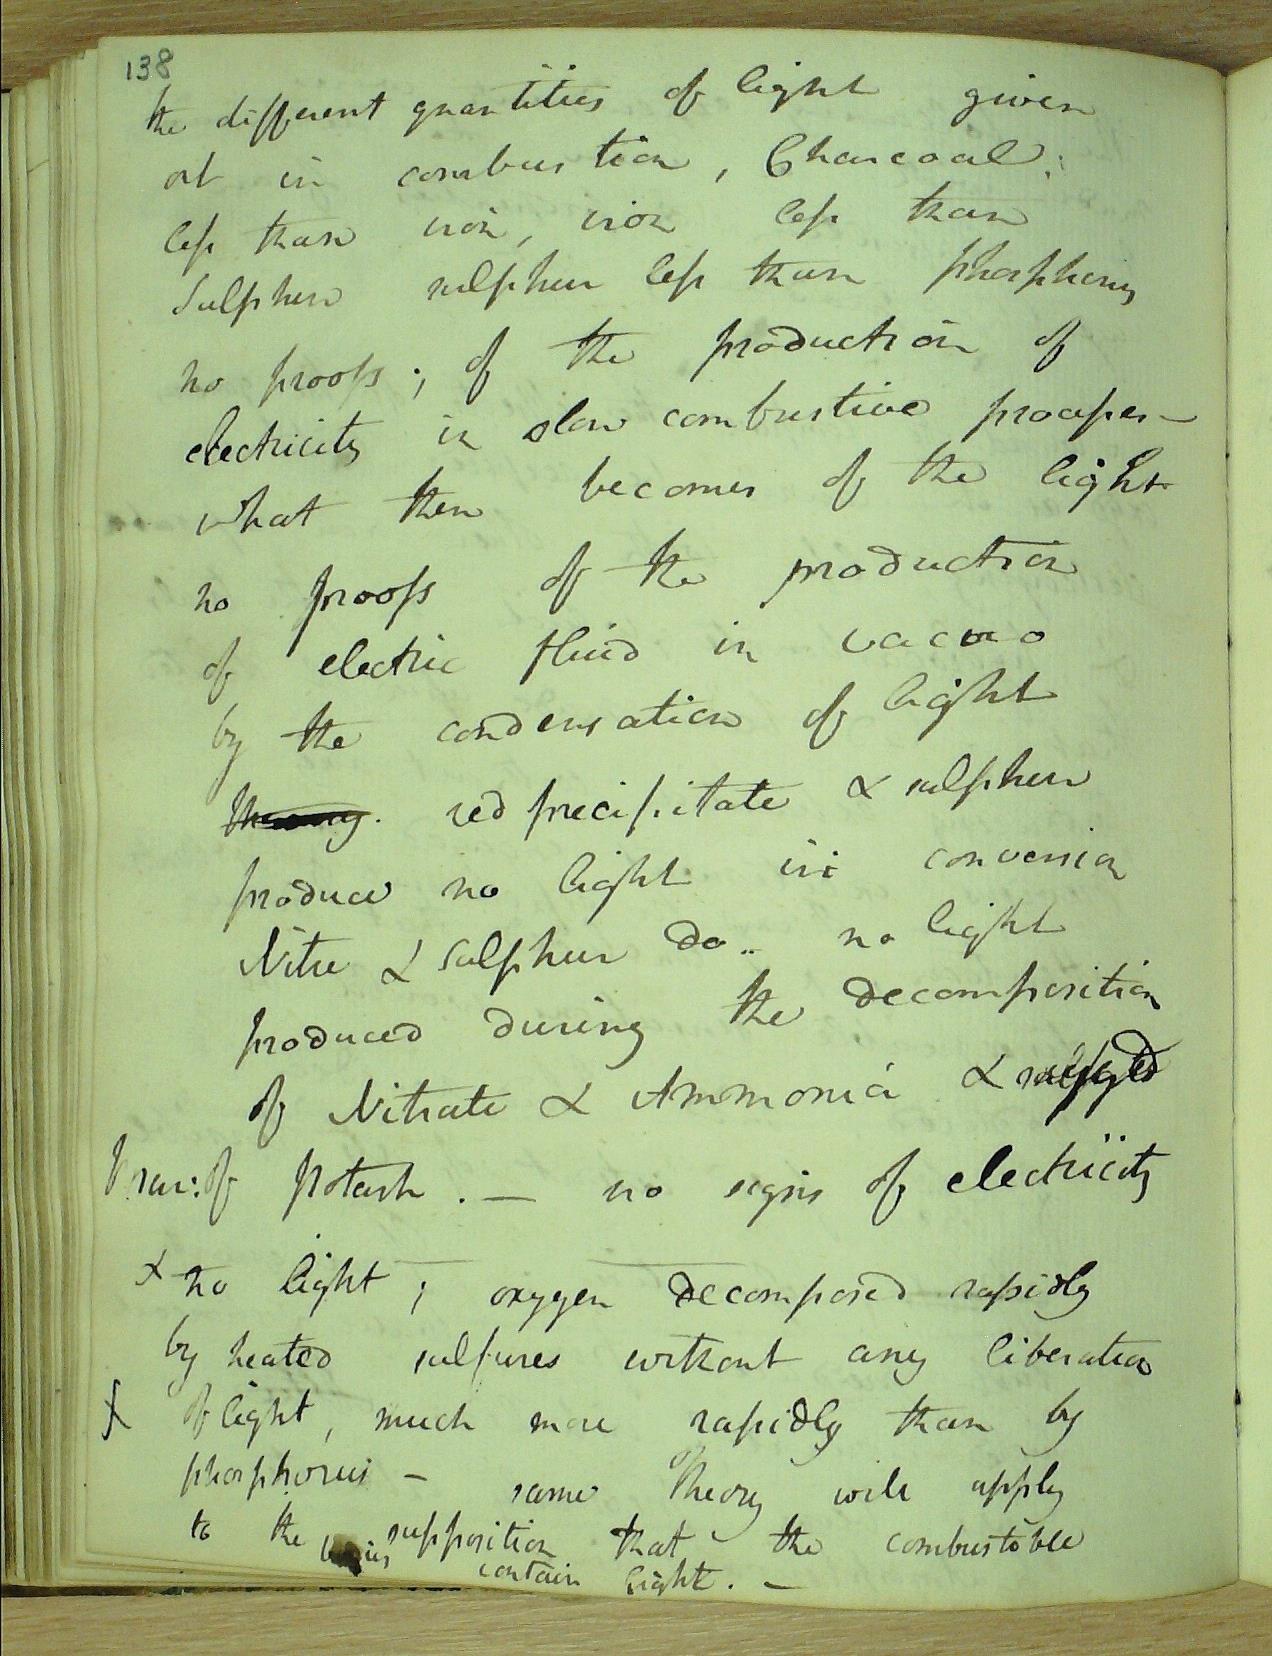 138
the different quantities of light given
out in combustion, Charcoal.
less than iron, iron less than
Sulphur sulphur less than phosphorus
no proofs; of the production of
electricity in slow combustive processes –
what then becomes of the light
no proofs of the production
of electric fluid in vacuo
by the condensation of light
red precipitate & sulphur
produce no light in conversion
Nitre & Sulphur do.. no light
produced during the decomposition
of Nitrate & Ammonia &
of potash. — no signs of electricity
x no light; oxygen decomposed rapidly
by heated sulfures without any liberation
x of light, much more rapidly than by
phosphorus – same Theory will apply
to the supposition that the combustible
bodies contain light. —